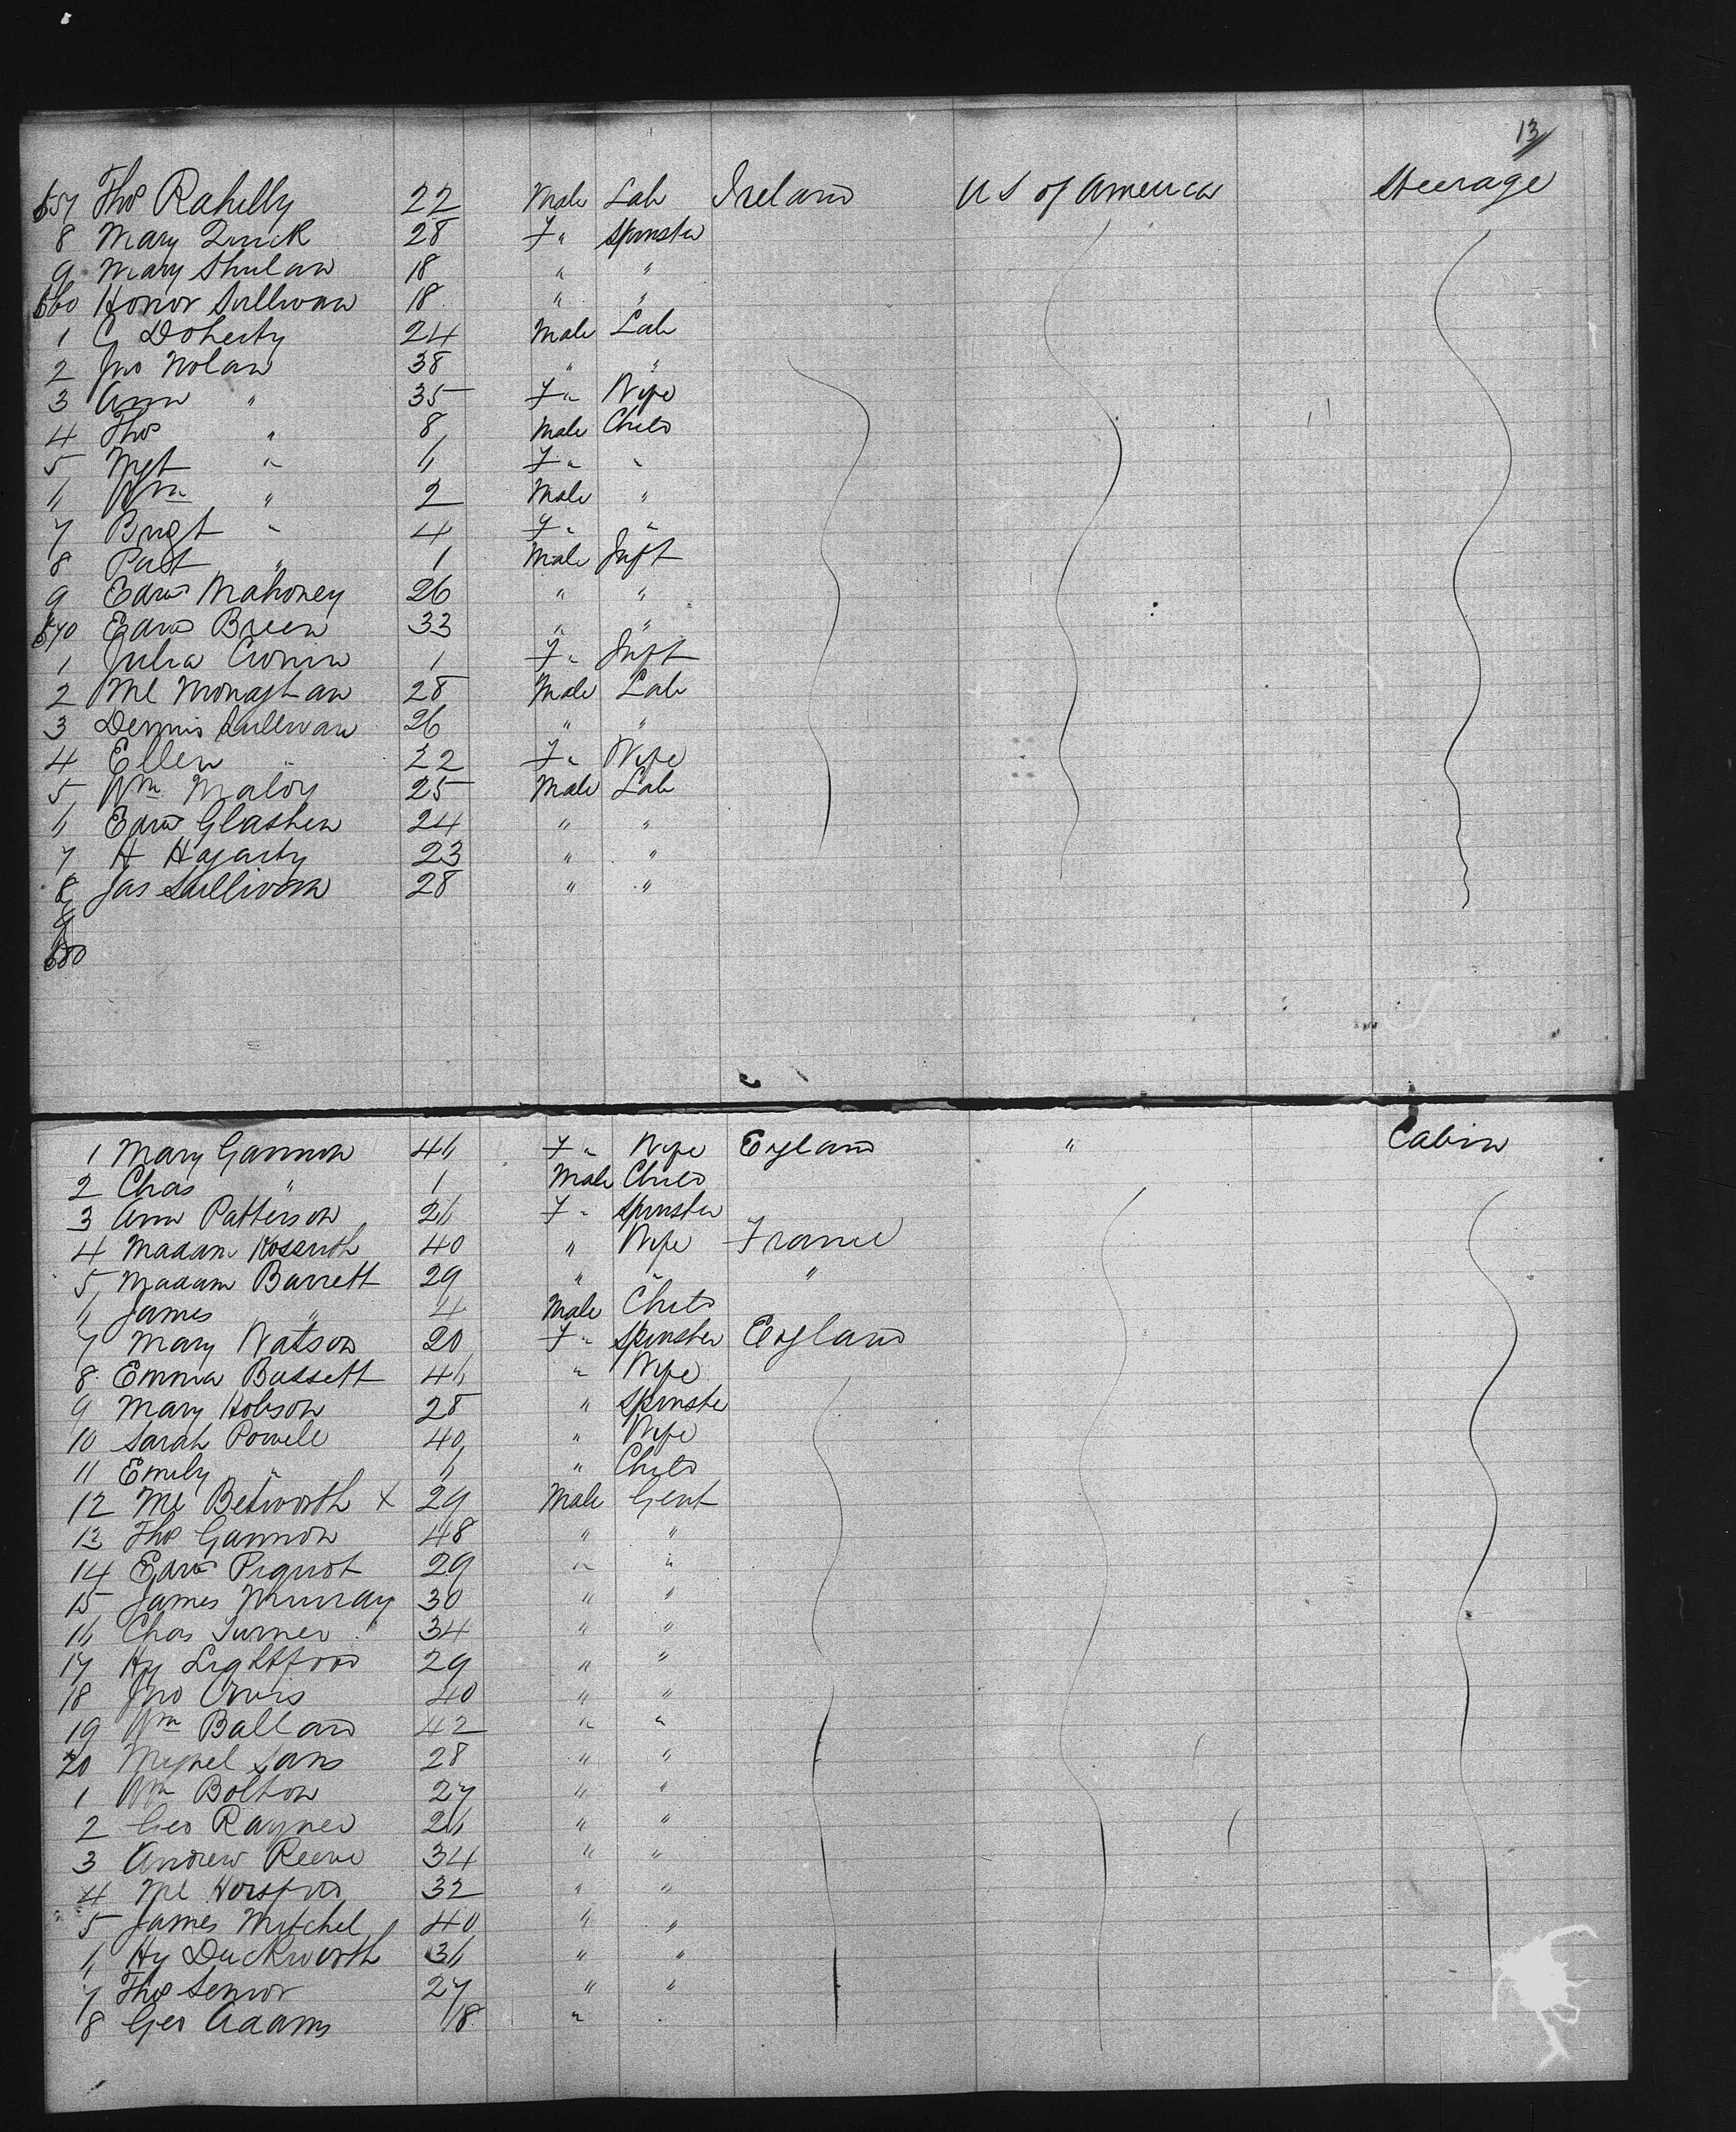 13
657 Thos Rahilly 22 Male Lab Ireland U S of America Steerage
8 Mary Quick 28 Fe Spinster
9 Mary Shulan 18 " "
660 Honor Sullivan 18 " "
1 C Doherty 24 Male Lab
2 Jno Nolan 38 " "
3 Ann " 35 Fe Wife
4 Thos " 8 Male Child
5 Mgt " 6 Fe "
6 Wm " 2 Male "
7 Brigt " 4 Fe "
8 Patt " 1 Male Inft
9 Edwd Mahoney 26 " "
670 Edwd Breen 33 " "
1 Julia Cronin 1 Fe Inft
2 Ml Monaghan 28 Male Lab
3 Dennis Sullivan 26 " "
4 Ellen " 22 Fe Wife
5 Wm Maloy 25 Male Lab
6 Edwd Glashen 24 " "
7 H Hagarty 23 " "
8 Jas Sullivan 28 " "
9
680
1 Mary Gannon 46 Fe Wife England " Cabin
2 Chas " 1 Male Child
3 Ann Patterson 26 Fe Spinster
4 Madam Kossuth 40 " Wife France
5 Madam Barrett 29 " " "
6 James " 4 Male Child
7 Mary Watson 20 Fe Spinster England
8 Emma Bassett 46 " Wife
9 Mary Hobson 28 " Spinster
10 Sarah Powell 40 " Wife
11 Emily " 6 " Child
12 Ml Betworth X 29 Male Gent
13 Thos Gannon 48 " "
14 Edwd Piguot 29 " "
15 James Murray 30 " "
16 Chas Turner 34 " "
17 Hy Lightfood 29 " "
18 Jno Orvis 40 " "
19 Wm Balland 42 " "
20 Miguel Sans 28 " "
1 Wm Bolton 27 " "
2 Geo Rayner 26 " "
3 Andrew Reeve 34 " "
4 Ml Horsford 32 " "
5 James Mitchel 40 " "
6 Hy Duckworth 36 " "
7 Thos Senior 27 " "
8 Geo Adams 18 "